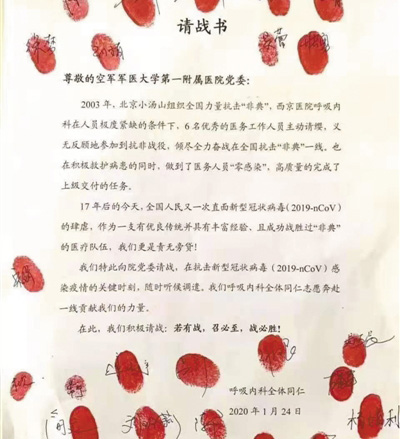 请战书
尊敬的空军军医大学第一附属医院党委：
2003年，北京小汤山组织全国力量抗击“非典”，西京医院呼吸内
科在人员极度紧缺的条件下，6名优秀的医务工作人员主动请缨，义
无反顾地参加到抗非战役，倾尽全力奋战在全国抗击“非典”一线，也
在积极救护病患的同时，做到了医务人员“零感染”，高质量的完成了
上级交付的任务。
17年后的今天，全国人民又一次直面新型冠状病毒（2019-nCoV）
的肆虐，作为一支有优良传统并具有丰富经验、且成功战胜过“非典”
的医疗队伍，我们更是责无旁贷！
我们特此向院党委请战，在抗击新型冠状病毒（2019-nCoV）感
染疫情的关键时刻，随时听候调遣。我们呼吸内科全体同仁志愿奔赴
一线贡献我们的力量。
在此，我们积极请战：若有战，召必至，战必胜！
呼吸内科全体同仁
2020年1月24日